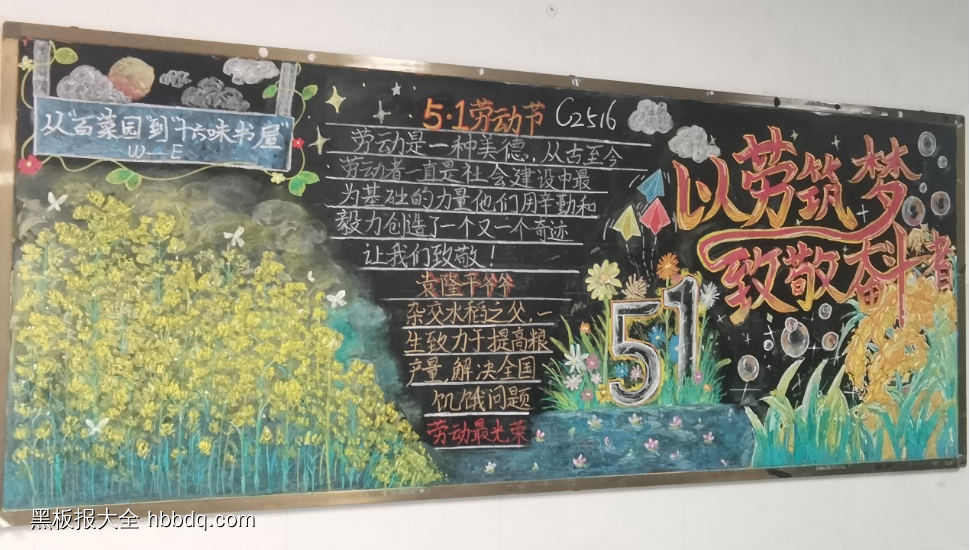 从"百菜园"到"十六味书屋"
W—E
5·1劳动节 C2516
劳动是一种美德,从古至今
劳动者一直是社会建设中最
为基础的力量他们用辛勤和
毅力创造了一个又一个奇迹
让我们致敬!
袁隆平爷爷
杂交水稻之父,一
生致力于提高粮
产量,解决全国
饥饿问题
劳动最光荣
51
以劳筑梦
致敬奋斗者
黑板报大全 hbbdq.com